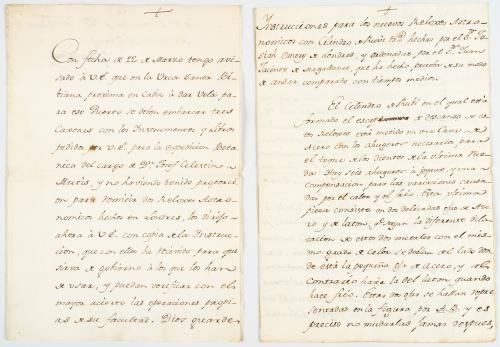 Con fecha de 22 de Marzo tengo avi-
sado à V.E. que en la Urca Santa Bi-
biana proxima en Cadiz à dar Vela pa-
ra ese Puerto se deben embarcar tres
Caxones con los Instrumentos y libros
pedidos por V.E. para la expedicion Bota-
nica del cargo de Dn. Josef Celestino
Mutis, y no haviendo tenido proporcion
para remitir dos Reloxes Astro-
nomicos hechos en Londres, los dirijo
ahora à V.E. con copia de la Instruc-
cion, que con ellos he recivido para que
sirva de gobierno à los que los han
de usar, y puedan verificar con el
mayor acierto las operaciones propi-
as de su facultad. Dios guarde
Instrucciones para los nuevos Reloxes Astro-
nomicos con Cilindro de Rubi hechos por el Sr. Jo-
siah Emery de Londres, y ordenadas por el Sr. Juan
Jacinto de Magallanes, que ha hecho prueba de su modo
de andar comparado con tiempo medio.
El Celindro de Rubi en el qual està
formado el escape ò descanso de es-
tos Reloxes està metido en una Caxa de
Acero con los ahugeros necesarios para
el toque de los dientes de la ultima Rue-
da. Hay seis ahugeros de joyas, y una
compensacion para las variaciones causa-
das por el calor y el frio. Esta ultima
pieza consiste en dos delicadas ojas de Ace-
ro, y de laton, que segun la diferente dila-
tacion de estos dos metales con el mismo
grado de calor se doblan del lado don-
de està la pequeña oja de Acero, y al
contrario hacia la del laton quando
hace frio. Estas dos ojas se hallan repre-
sentadas en la figura por A.B. y es
preciso no mudarlas jamas despues